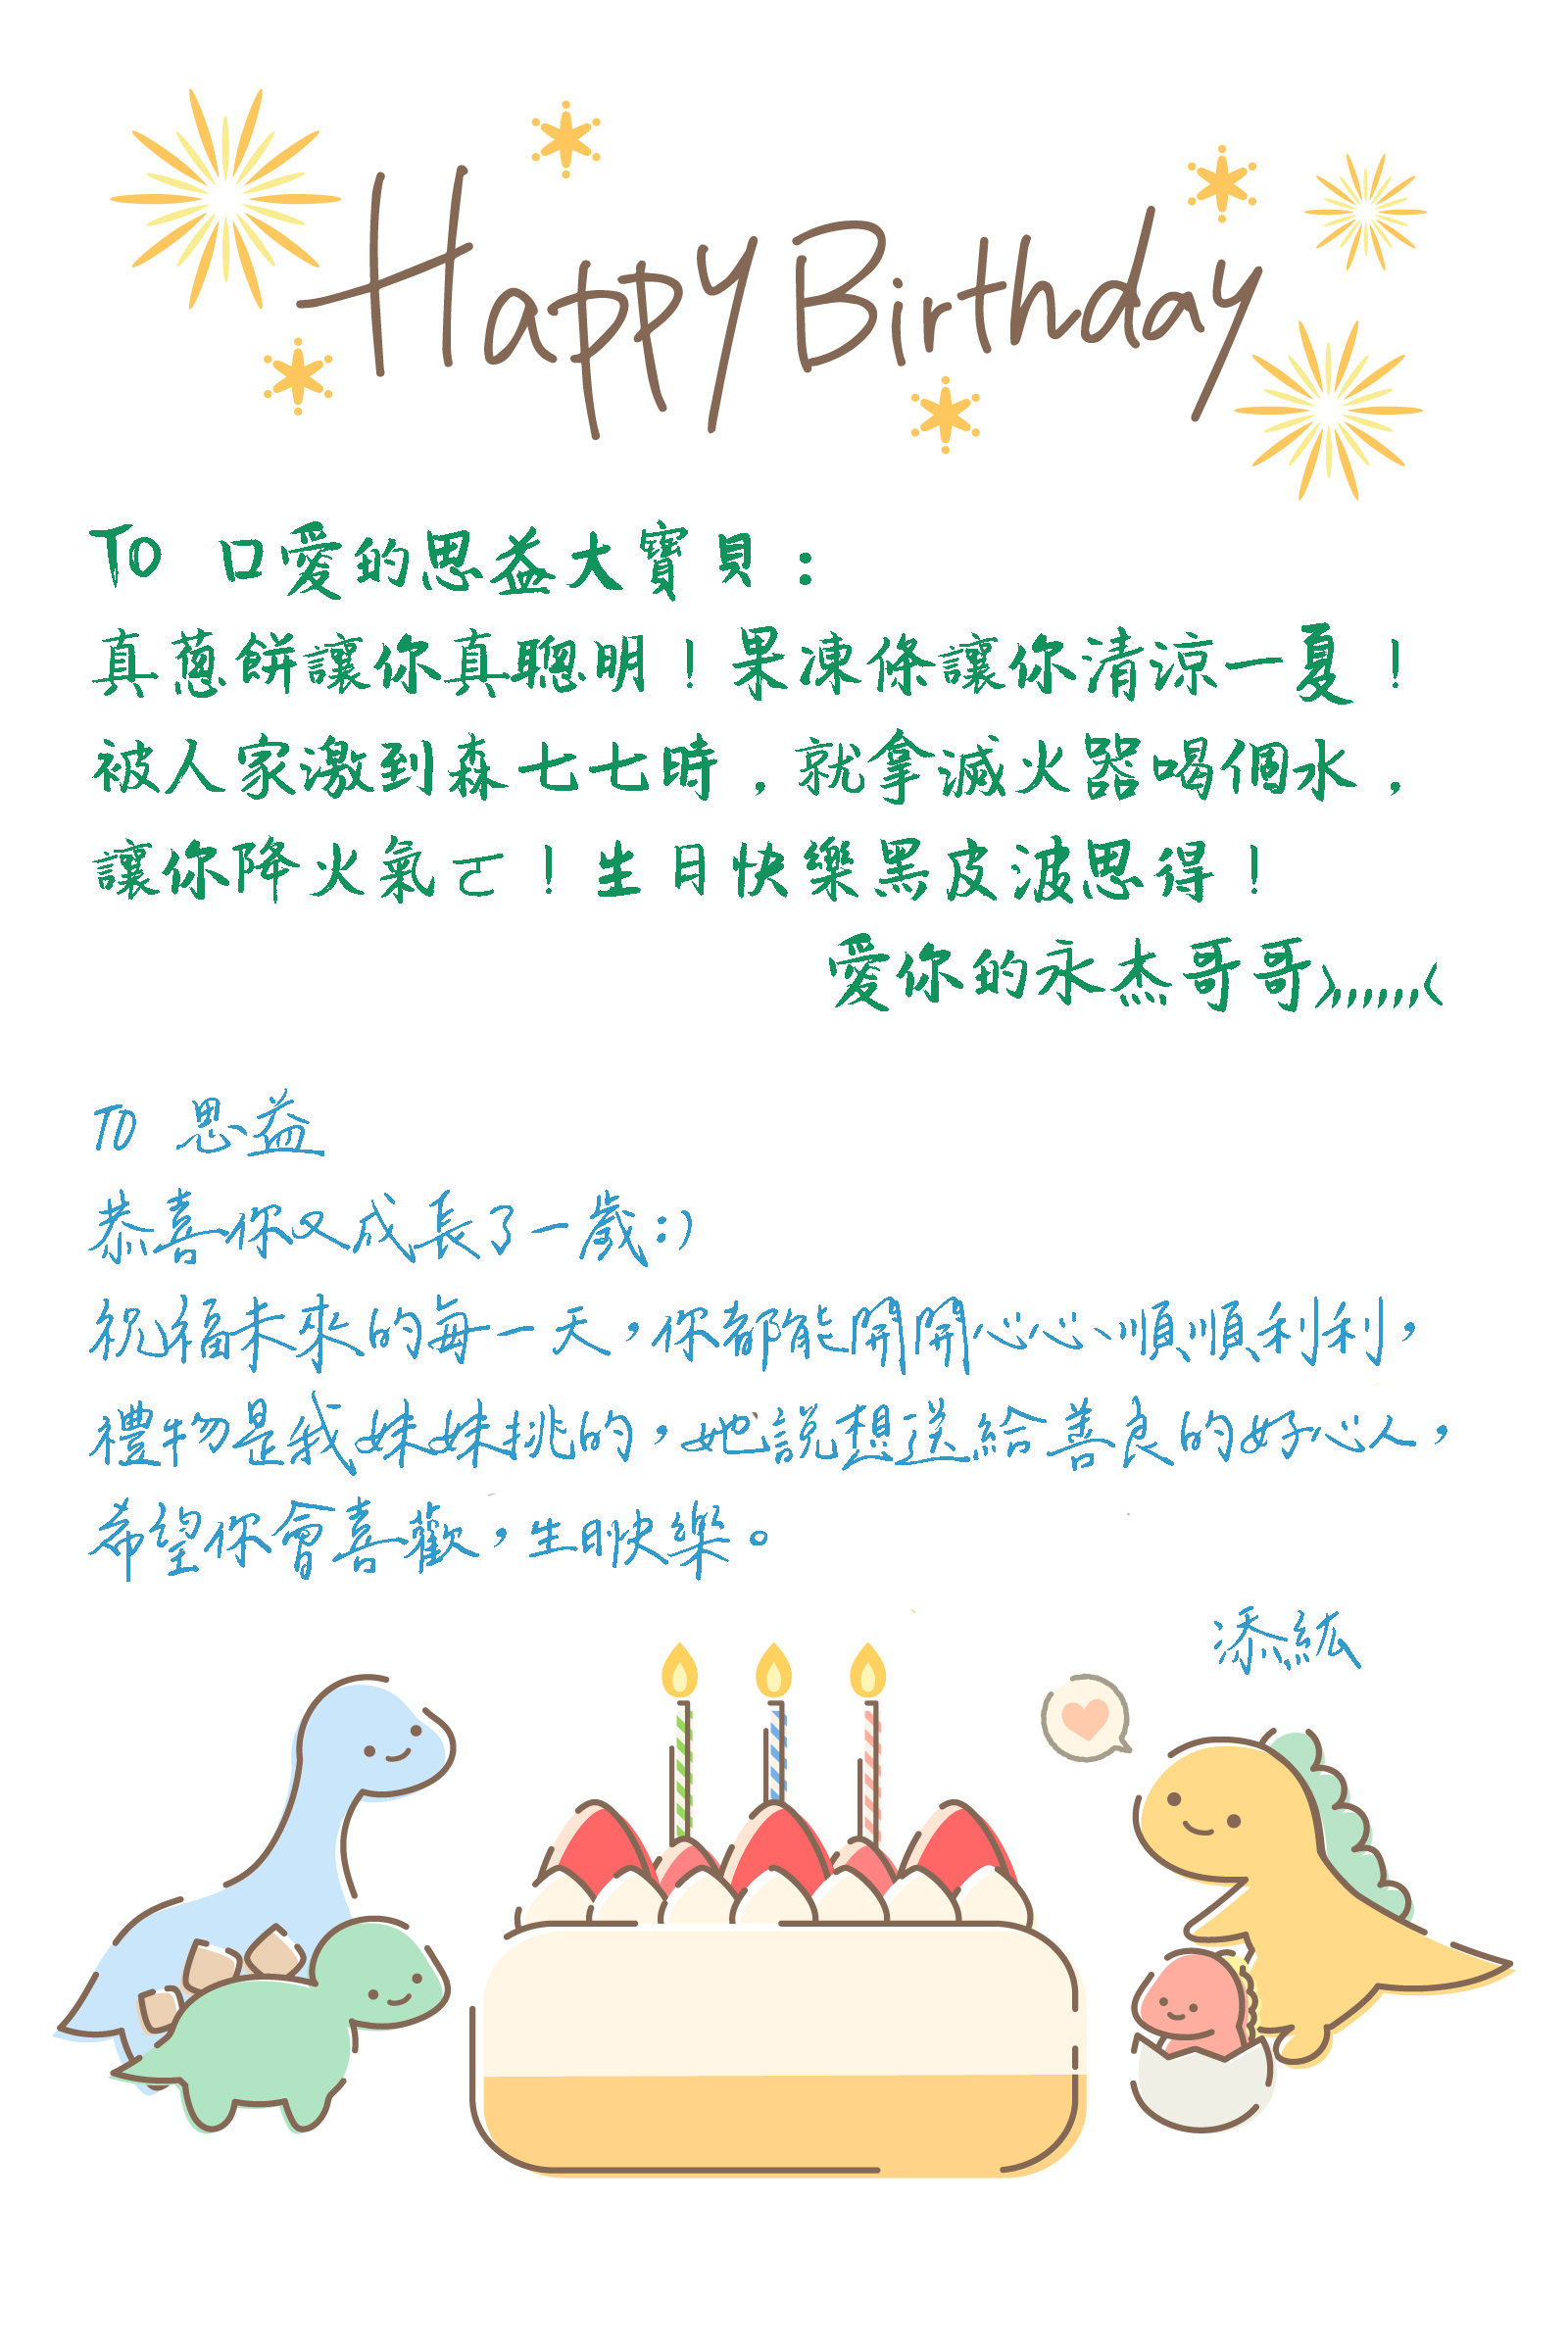 Happy Birthday
TO 口愛的思益大寶貝：
真蔥餅讓你真聰明！果凍條讓你清涼一夏！
被人家激到森七七時，就拿滅火器喝個水，
讓你降火氣ㄛ！生日快樂黑皮波思得！
愛你的永杰哥哥>,,,,,,<
TO 思益
恭喜你又成長了一歲:)
祝福未來的每一天，你都能開開心心、順順利利，
禮物是我妹妹挑的，她說想送給善良的好心人，
希望你會喜歡，生日快樂。
添紘